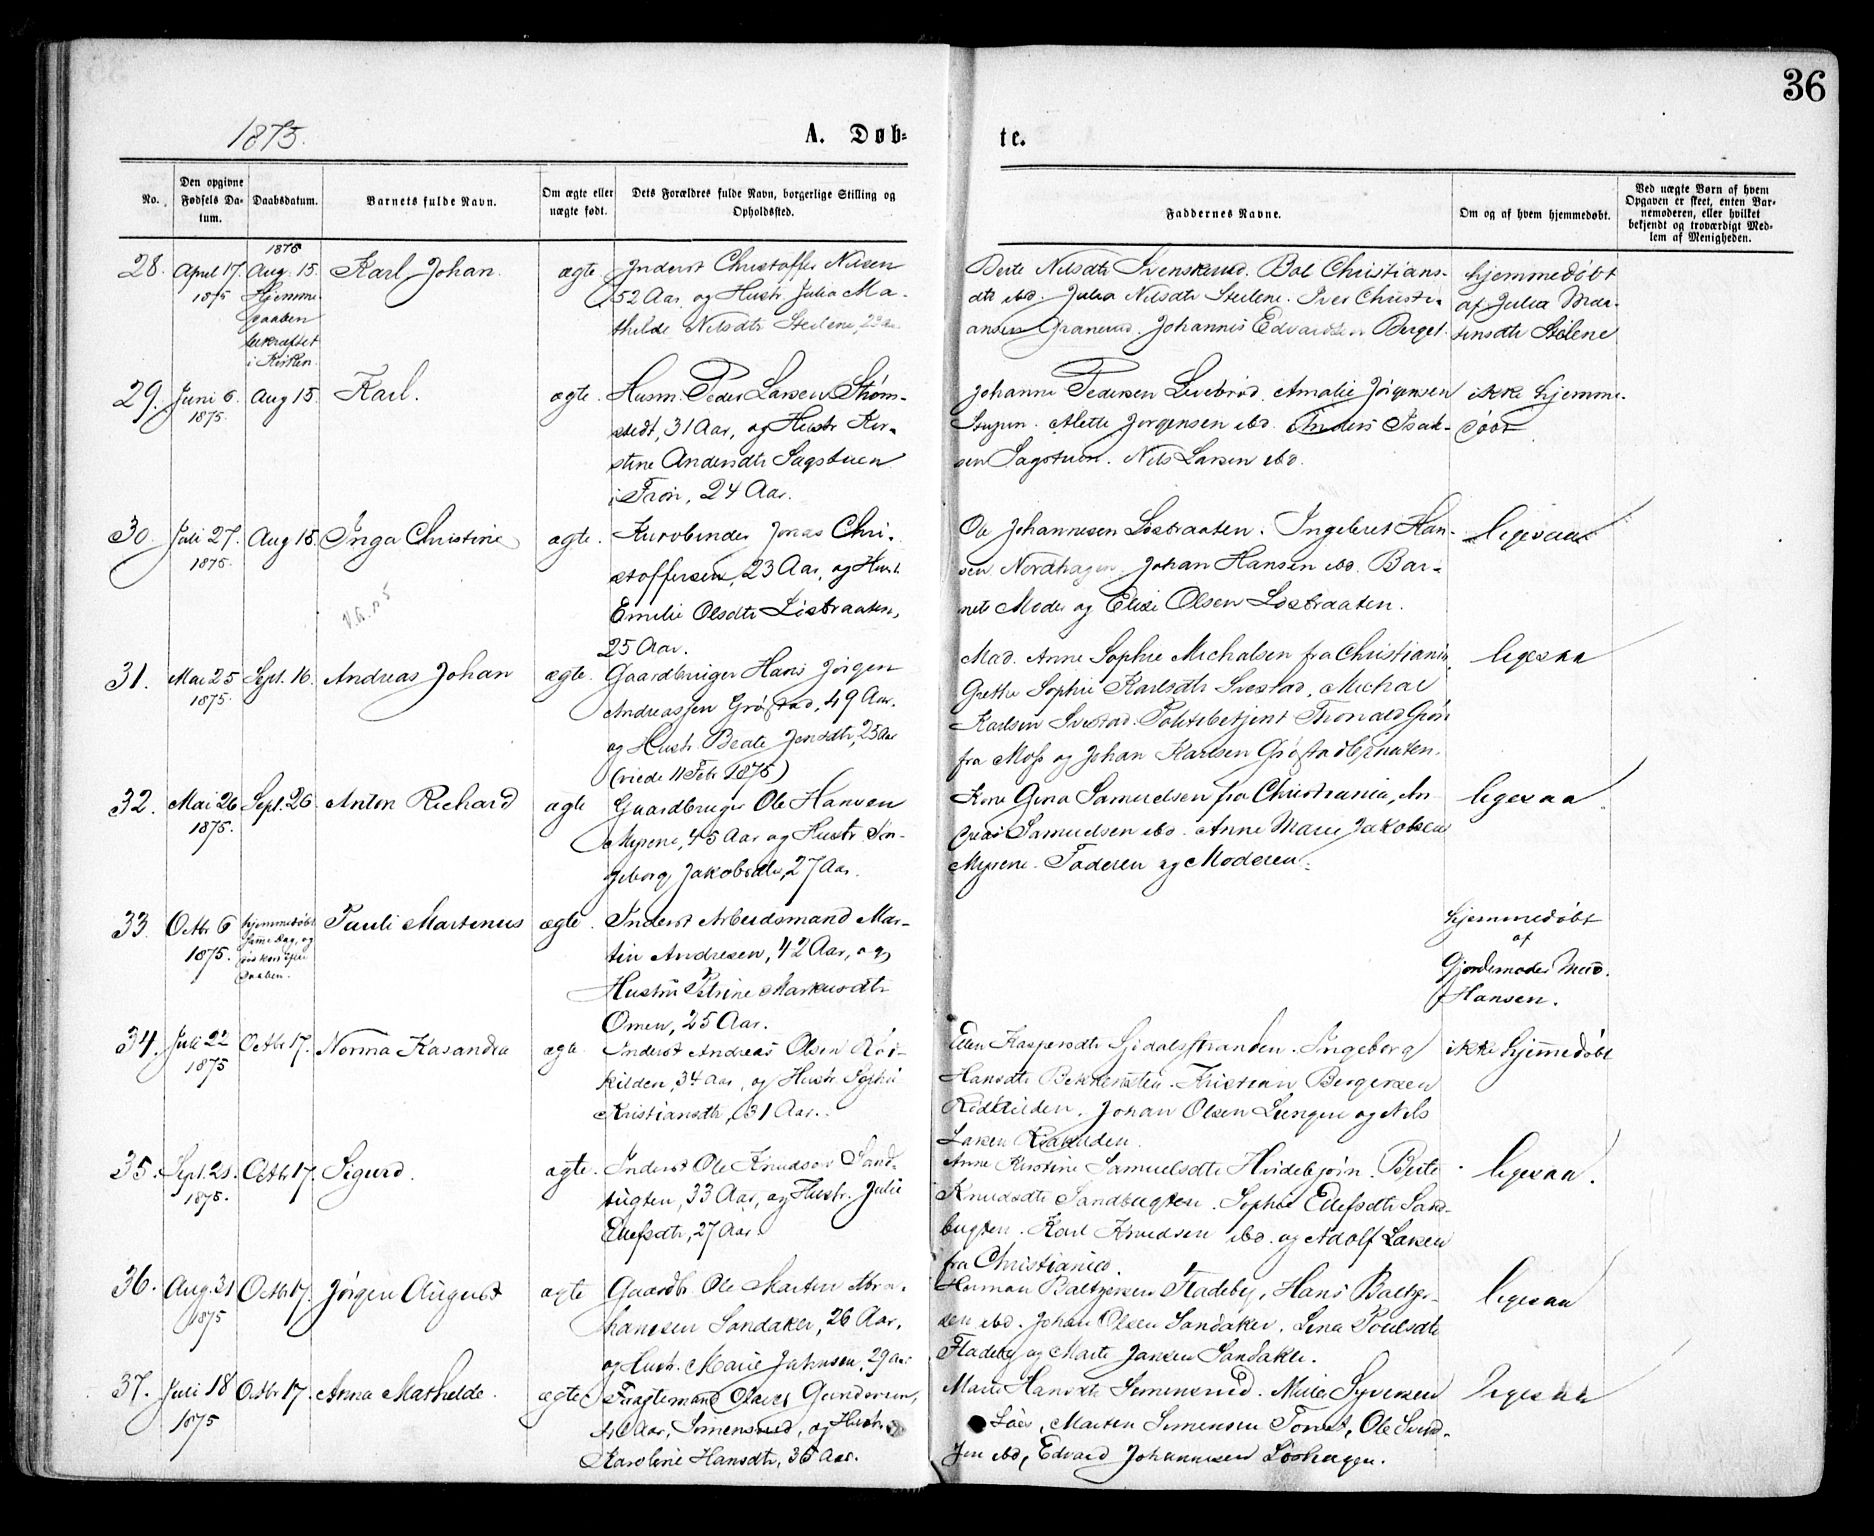 36
1875.
A. Døb-
te.
No.
Den opgivne Fødsels Da-tum.
Daabsdatum.
Barnets fulde Navn.
Om ægte eller uægte født.
Dets Forældres fulde Navn, borgerlige Stilling og Opholdssted.
Faddernes Navne.
Om og af hvem hjemmedøbt.
Ved uægte Børn af hvem Opgaven er skeet, enten Bar-nemoderen, eller hvilket bekjendt og troværdigt Med-lem af Menigheden.
28. April 17. 1875
1875 Aug. 15. Hjemme-daaben bekræftet i Kirken
Karl Johan
ægte.
Inderst Christoffer Nilsen
52 Aar, og Hustr. Julia Ma-
thilde Nilsdtr Steilene, 23 Aar
Berte Nilsdtr Svenskerud. Bol Christians-
dtr ibd. Julia Nilsdtr Steilene. Iver Christi-
ansen Granerud. Johannes Edvardsen Berget
hjemmedøbt
af Julia Mar-
tinsdtr Stølene
29. Juni 6. 1875.
Aug 15.
Karl.
ægte.
Husm. Peder Larsen Strøm-
stedt, 31 Aar, og Hustr Kir-
stine Andersdtr Sagstuen
i Tron, 24 Aar.
Johanne Pedersen Levebrød. Amalie Jørgensen
Stupin. Alette Jørgensen ibd. Anders Isak-
sen Sagstuen. Nils Larsen ibd.
ikke hjemme-
døbt
30. Juli 27. 1875.
Aug 15.
Inga Christine
V.G. n 5
ægte.
Kurvbinder Jonas Chri-
stoffersen, 23 Aar, og Hust.
Emilie Olsdtr Løsbraaten,
25 Aar.
Ole Johannesen Løsbraaten. Ingebret Han-
sen Nordhagen. Johan Hansen ibd. Bar-
nets Moder og Elise Olsen Løsbraaten.
ligesaa
31. Mai 25 1875.
Sept. 16.
Andreas Johan
ægte.
Gaardbruger Hans Jørgen
Andreassen Grøstad, 49 Aar.
og Hustr. Beate Jensdtr, 25 Aar
(viede 11 Febr 1875)
Mad. Anne Sophie Michalsen fra Christiania,
Grethe Sophie Karlsdtr Svestad, Michal
Karlsen Svestad. Politibetjent Tronald Grøn
fra Moss og Johan Karlsen Grøstadbraaten.
ligesaa
32. Mai 26 1875.
Sept. 26.
Anton Richard
ægte
Gaardbruger Ole Hansen
Myrene, 45 Aar og Hustr. In-
geborg Jakobsdtr, 27 Aar.
Kone Gina Samuelsen fra Christiania, An-
dreas Samuelsen ibd. Anne Marie Jakobsen
Myrene. Faderen og Moderen.
ligesaa.
33. Octbr 6 1875.
hjemmedøbt samme Dag, og døde efter Daaben.
Pauli Martinus
ægte.
Inderst Arbeidsmand Mar-
tin Andresen, 42 Aar, og
Hustru Petrine Markusdtr
Omen, 25 Aar.
hjemmedøbt
af
Gjordemoder Mad.
Hansen.
34. Juli 22 1875
Octbr 17.
Norma Kasandra
ægte.
Inderst Andreas Olsen Rød-
kilden, 34 Aar, og Hustr Sophie
Kristiansdtr, 31 Aar.
Elen Kaspersdtr Sjødalsstranden. Ingeborg
Hansdtr Bekkensten. Kristian Bergersen
Rødkilden. Johan Olsen Lunger og Nils
Larsen
ikke hjemmedøbt
35. Sept. 21. 1875.
Octbr 17.
Sigurd.
ægte.
Inderst Ole Knudsen Sand-
bugten, 33 Aar, og Hustr. Julie
Ellefsdtr, 27 Aar.
Anne Kirstine Samuelsdtr Hvidebjørn. Berte
Knudsdtr Sandbugten. Sophie Ellefsdtr Sand-
bugten. Karl Knudsen ibd. og Adolf Larsen
fra Christiania.
ligesaa.
36. Aug. 31 1875
Octbr 17.
Jørgen August
ægte
Gaardbr. Ole Martin Abra-
hamsen Sandaker, 26 Aar,
og Hustr. Marie Jahnsen, 29 Aar
Herman Baltzersen Fladeby, Hans Baltzer-
sen ibd. Johan Olsen Sandaker. Lina Poulsdtr
Fladeby og Marte Jansen Sandaker.
ligesaa
37. Juli 18 1875
Octbr 17.
Anna Mathilde.
ægte
Fragtemand Olaves Gundersen,
Aar, Simensrud, og Hustr.
Karoline Hansdtr, 36 Aar.
Marie Hansdtr Simensrud. Mille Syversen
Martin Simensen Toret, Ole Svend-
sen ibd, Edvard Johannesen Løshagen.
ligesaa